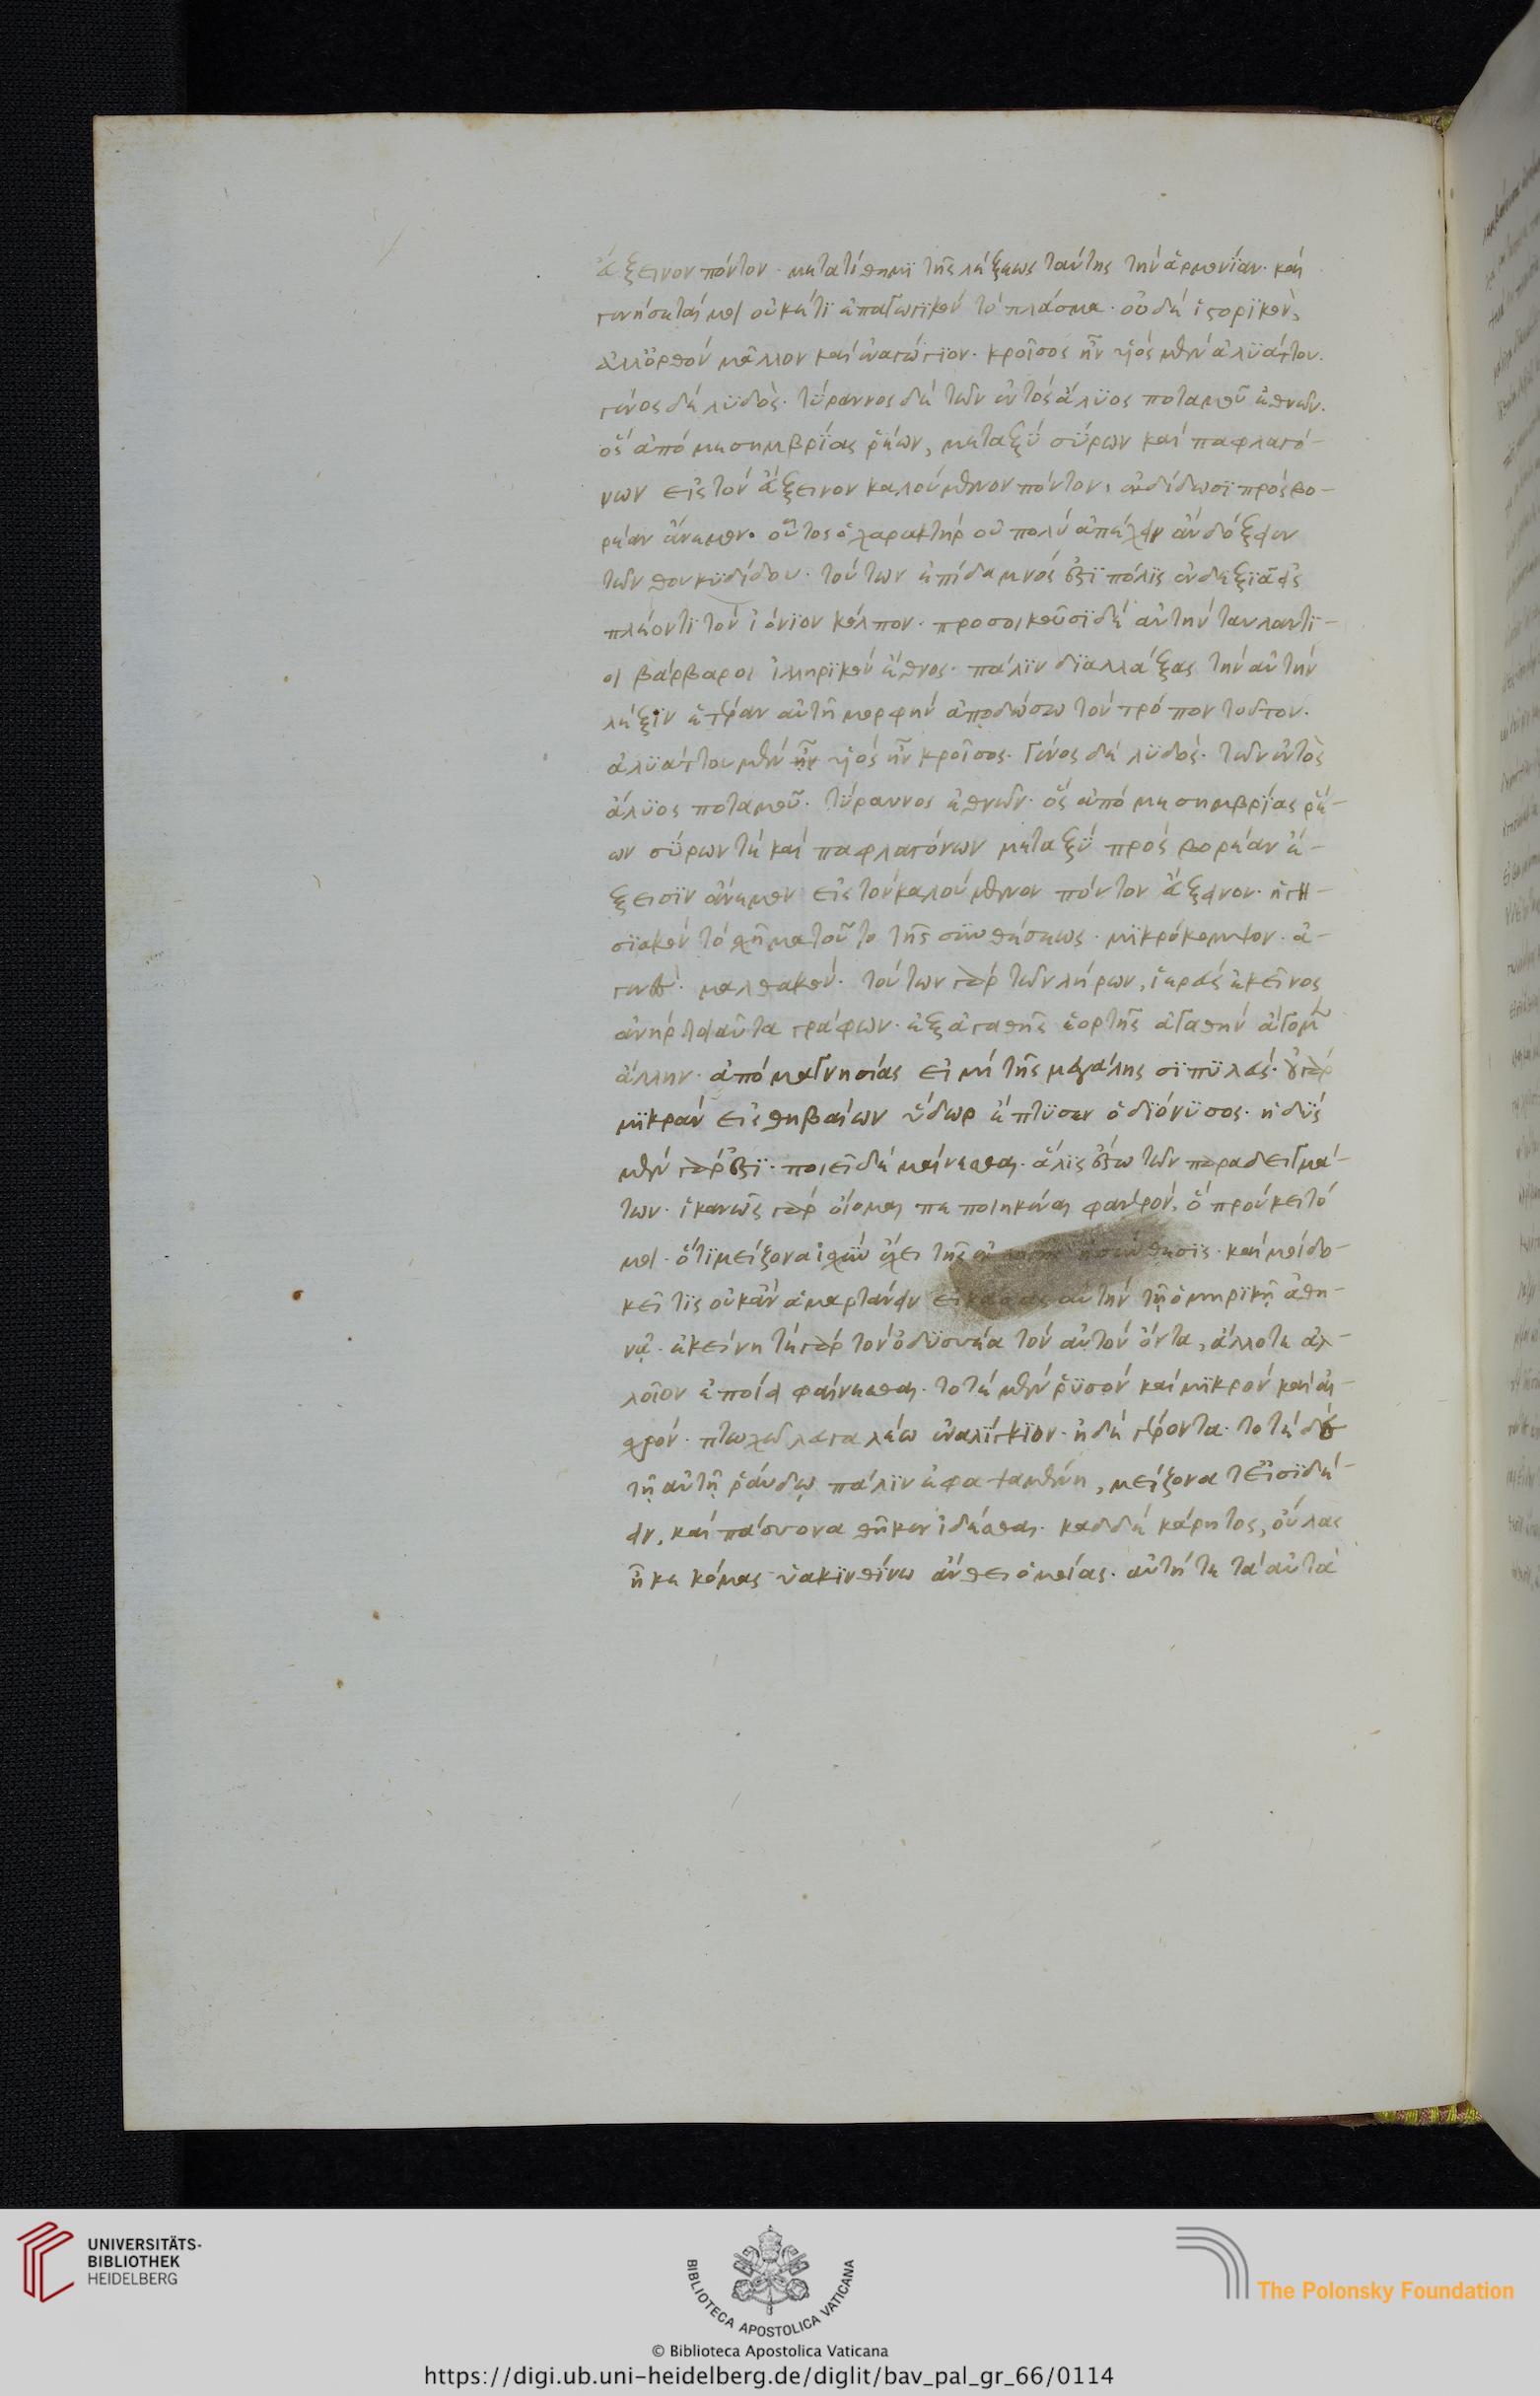 ἄξεινον πόντον· μετατίθημι τῆς λέξεως ταύτης τὴν ἁρμονίαν· καὶ
γενήσεταί μοι οὐκέτι ἐπαγωγικὸν τὸ πλάσμα· οὐδὲ ἱστορικὸν,
ἀλλ' ὀρθὸν μᾶλλον καὶ ἐναγώγιον· κροῖσος ἦν υἱὸς μὲν ἀλυάττου.
γένος δὲ λυδὸς· τύραννος δὲ τῶν ἐντὸς ἅλυος ποταμοῦ ἐθνῶν.
ὃς ἀπὸ μεσημβρίας ῥέων, μεταξὺ σύρων καὶ παφλαγό-
νων εἰς τὸν ἄξεινον καλούμενον πόντον, ἐκδίδωσι πρὸς βο-
ρέαν ἄνεμον. οὗτος ὁ χαρακτὴρ οὐ πολὺ ἀπέχειν ἂν δόξειεν
τῶν θουκυδίδου· τούτων ἐπίδαμνός ἐστι πόλις ἐν δεξιᾷ εἰς
πλέοντι τὸν ἰόνιον κόλπον· προσοικοῦσι δὲ αὐτὴν ταυλαντι-
οι βάρβαροι ἰλληρικὸν ἔθνος· πάλιν διαλλάξας τὴν αὐτὴν
λέξιν ἑτέραν αὐτῇ μορφὴν ἀποδώσω τὸν τρόπον τοῦτον.
ἀλυάττου μὲν ἦν υἱὸς ἦν κροῖσος· γένος δὲ λυδὸς· τῶν ἐντὸς
ἅλυος ποταμοῦ· τύραννος ἐθνῶν· ὃς ἀπὸ μεσημβρίας ῥέ-
ων σύρων τὲ καὶ παφλαγόνων μεταξὺ πρὸς βορέαν ἔ-
ξεισιν ἄνεμον εἰς τὸν καλούμενον πόντον ἄξεινον· ἡγη-
σιακὸν τὸ σχῆμα τοῦτο τῆς συνθέσεως· μικρόκομψον· ἀ-
γεννὲς· μαλθακὸν· τούτων γὰρ τῶν λήρων, ἱερεὺς ἐκεῖνος
ἀνὴρ τοιαῦτα γράφων· ἐξ ἀγαθῆς ἑορτῆς ἀγαθὴν ἄγομεν
ἄλλην· ἀπὸ μαγνησίας εἰμὶ τῆς μεγάλης σιπυλεύς· οὐ γὰρ
μικρὰν εἰς θηβαίων ὕδωρ ἔπτυσεν ὁ διόνυσος· ἡδὺς
μὲν γάρ ἐστι· ποιεῖ δὲ μαίνεσθαι· ἅλις ἔστω τῶν παραδειγμά-
των· ἱκανῶς γὰρ οἴομαι πεποιηκέναι φανερὸν, ὃ προὔκειτό
μοι· ὅτι μείζονα ἰσχὺν ἔχει τῆς ἐκλογῆς ἡ σύνθεσις· καὶ μοὶ δο-
κεῖ τις οὐκ ἂν ἁμαρτάνειν εἰκάσας αὐτὴν τῇ ὁμηρικῇ ἀθη-
νᾷ· ἐκείνη τὲ γὰρ τὸν ὀδυσσέα τὸν αὐτὸν ὄντα, ἄλλοτε ἀλ-
λοῖον ἐποίει φαίνεσθαι· τοτὲ μὲν ῥυσὸν καὶ μικρὸν καὶ αἰ-
σχρὸν· πτωχῷ λευγαλέω ἐναλίγκιον· ἠδὲ γέροντα· τοτὲ δὲ
τῇ αὐτῇ ῥάβδῳ πάλιν ἐφαψαμένη, μείζονα τ' εἰσιδέ-
ειν, καὶ πάσσονα θῆκεν ἰδέσθαι· καδδὲ κάρητος, οὔλας
ἧκε κόμας ὑακινθίνω ἄνθει ὁμοίας· αὐτή τε τὰ αὐτὰ
UNIVERSITÄTS-
BIBLIOTHEK
HEIDELBERG
BIBLIOTECA APOSTOLICA VATICANA
The Polonsky Foundation
© Biblioteca Apostolica Vaticana
https://digi.ub.uni-heidelberg.de/diglit/bav_pal_gr_66/0114